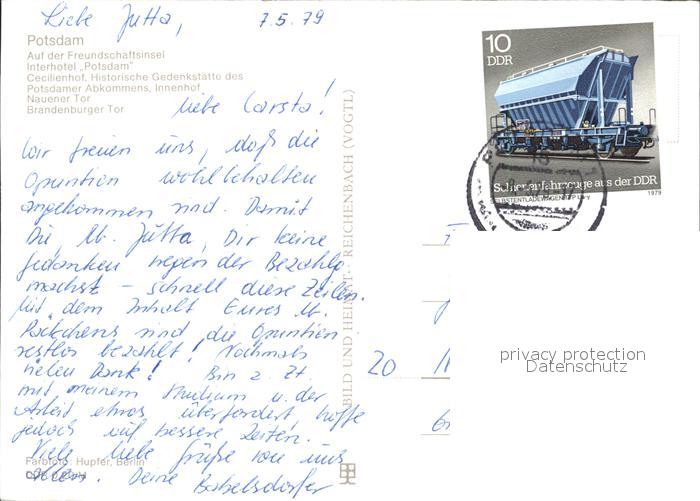 Liebe Jutta, 7.5.79
Potsdam
Auf der Freundschaftsinsel
Interhotel „Potsdam"
Cecilienhof, Historische Gedenkstätte des
Potsdamer Abkommens, Innenhof
Nauener Tor
Brandenburger Tor
liebe Carsta!
Wir freuen uns, daß die
Opuntien wohlbehalten
angekommen sind. Damit
Du, lb. Jutta, Dir keine
Gedanken wegen der Bezahlg.
machst – schnell diese Zeilen.
Mit dem Inhalt Eures lb.
Päckchens sind die Opuntien
restlos bezahlt! Nochmals
vielen Dank! Bin z. Zt.
mit meinem Studium u. der
Arbeit etwas überfordert, hoffe
jedoch auf bessere Zeiten.
Viele liebe Grüße von uns
allen. Deine Babelsdorfer
Farbfoto: Hupfer, Berlin
BILD UND HEIMAT REICHENBACH (VOGTL)
10
DDR
Schienenfahrzeuge aus der DDR
1979
20
privacy protection
Datenschutz